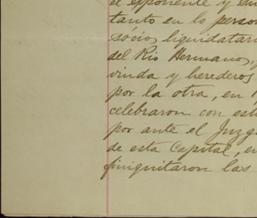 el exponente y su
tanto en lo person
sócios liquidatari
del Rio Hermanos,
viuda y herederos
por la otra, en
celebraron con est
por ante el Juzg
de esta Capital, en
finiquitaron las